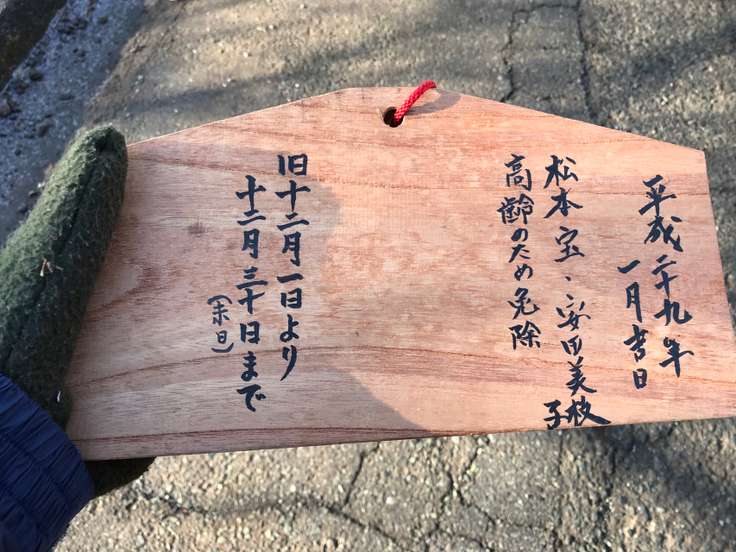 平成二十九年
一月吉日
松本宝・安田美枝子
高齢のため免除
旧十二月一日より
十二月三十日まで
(末日)